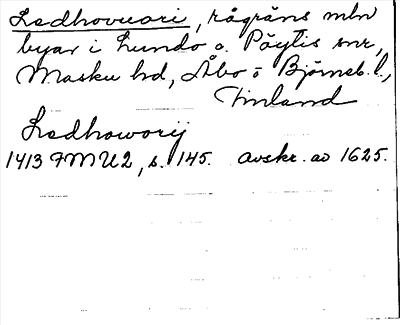 Ladhovuori, rågräns mln
byar i Lundo o. Pöytis snr,
Masku hd, Åbo o Björneb. l.,
Finland
Ladhoworij
1413 FMU2, s. 145. avskr. av 1625.